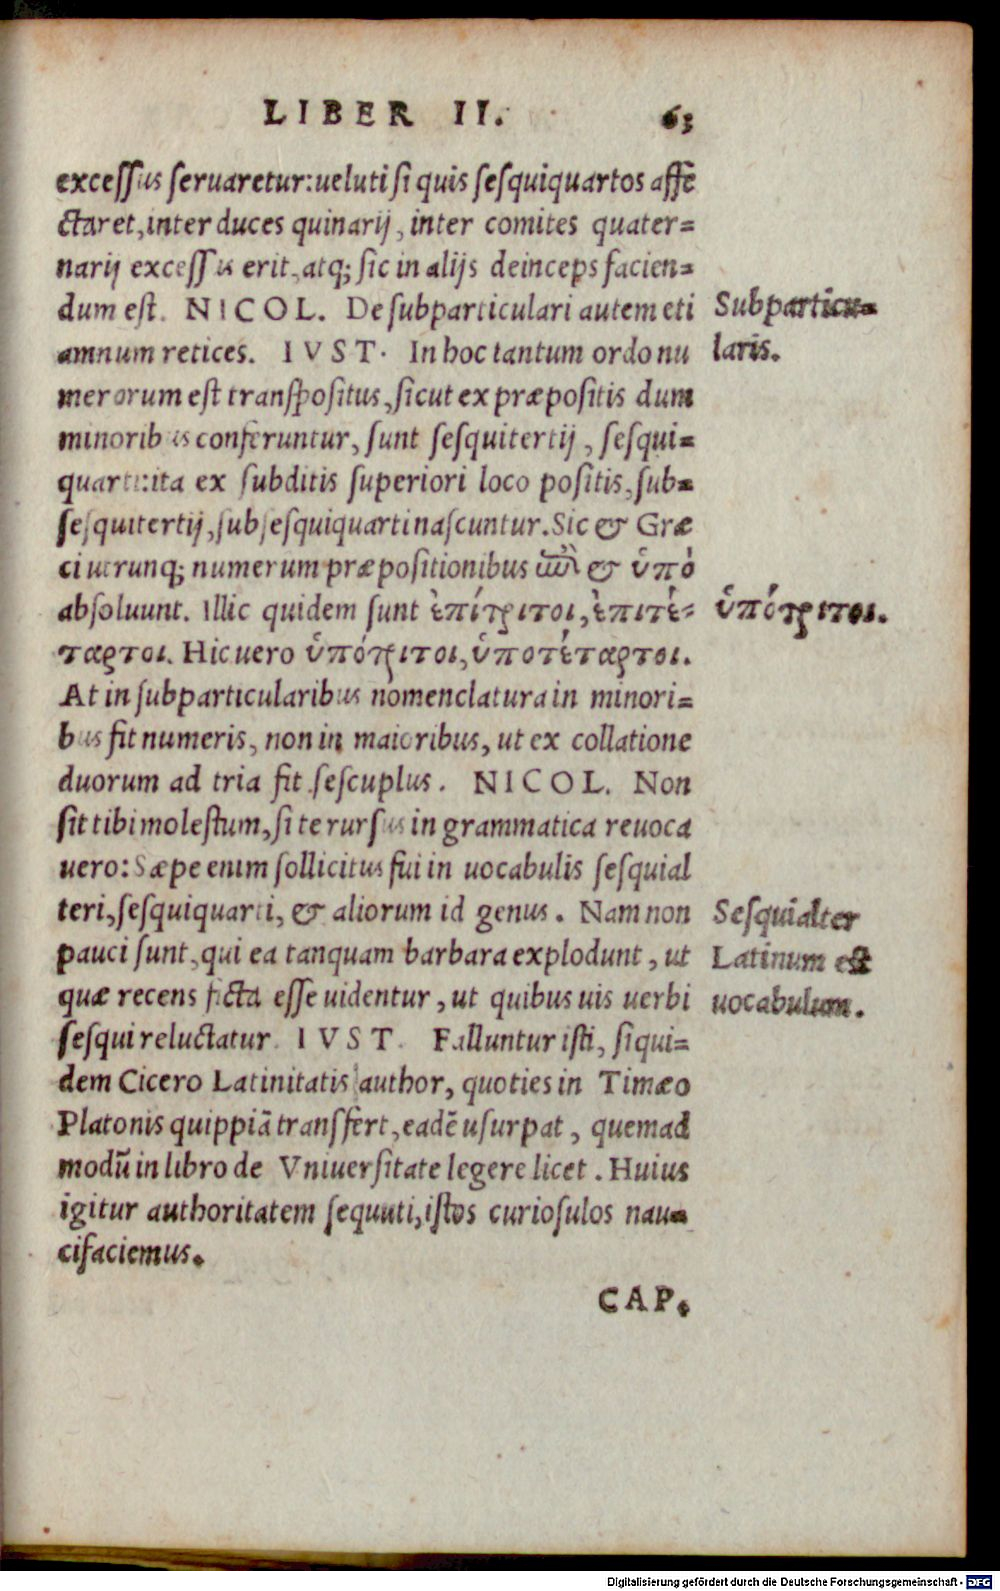 LIBER II. 63
excessus seruaretur: ueluti si quis sesquiquartos affe
ctaret, inter duces quinarij, inter comites quater=
narij excessus erit, atq; sic in alijs deinceps facien=
dum est. NICOL. De subparticulari autem eti
Subparticu=
amnum retices. IVST. In hoc tantum ordo nu
laris.
merorum est transpositus, sicut ex præpositis dum
minoribus conferuntur, sunt sesquitertij, sesqui=
quarti: ita ex subditis superiori loco positis, sub=
sesquitertij, subsesquiquarti nascuntur. Sic & Græ
ci utrunq; numerum præpositionibus & ὑπό
absoluunt. Illic quidem sunt ἐπίτριτοι, ἐπιτέ=
ὑπότριτοι.
ταρτοι. Hic uero ὑπότριτοι, ὑποτέταρτοι.
At in subparticularibus nomenclatura in minori=
bus fit numeris, non in maioribus, ut ex collatione
duorum ad tria fit sescuplus. NICOL. Non
sit tibi molestum, si te rursus in grammatica reuoca
uero: Sæpe enim sollicitus fui in uocabulis sesquial
teri, sesquiquarti, & aliorum id genus. Nam non
Sesquialter
pauci sunt, qui ea tanquam barbara explodunt, ut
Latinum est
quæ recens ficta esse uidentur, ut quibus uis uerbi
uocabulum.
sesqui reluctatur. IVST. Falluntur isti, siqui=
dem Cicero Latinitatis author, quoties in Timæo
Platonis quippiã transfert, eadẽ usurpat, quemad
modũ in libro de Vniuersitate legere licet. Huius
igitur authoritatem sequuti, istos curiosulos nau=
cifaciemus.
CAP.
Digitalisierung gefördert durch die Deutsche Forschungsgemeinschaft - DFG